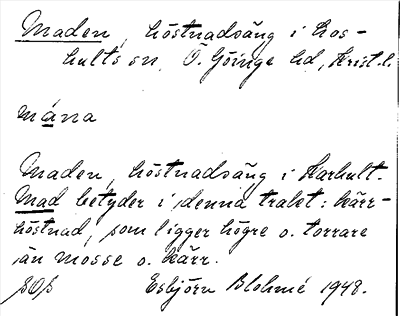 Maden, höstnadsäng i Los-
hults sn, Ö. Göinge hd, Krist. l.
måna
Maden, höstnadsäng i Harhult.
Mad betyder i denna trakt: kärr-
höstnad, som ligger högre o. torrare
än mosse o. kärr.
Esbjörn Blohmé 1948.